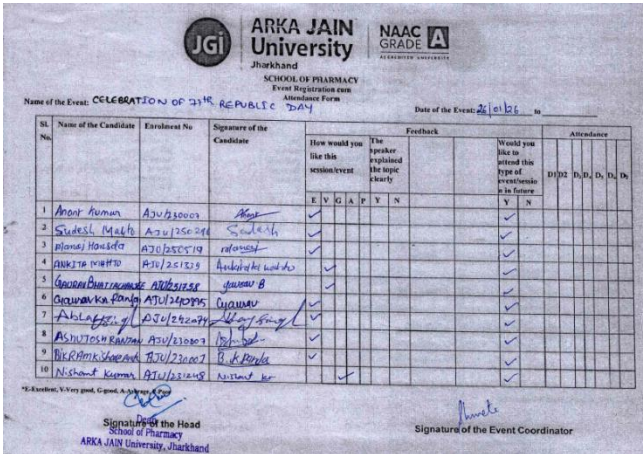 JGI
ARKA JAIN
University
Jharkhand
NAAC
GRADE A
ACCREDITED UNIVERSITY
SCHOOL OF PHARMACY
Event Registration cum
Attendance Form
Name of the Event: CELEBRATION OF 77th REPUBLIC DAY
Date of the Event: 26/01/26 to
Sl. No. Name of the Candidate Enrolment No Signature of the Candidate Feedback Attendance
How would you like this session/event The speaker explained the topic clearly Would you like to attend this type of event/session in future D1 D2 D3 D4 D5 D6 D7
E V G A P Y N Y N
1 Anant Kumar AJU/230007
2 Sudesh Mahto Sudesh
3 Hansda AJU/250519
4 ANKITA MAHTO AJU/251339
5 GAURAV BHATTACHARJEE AJU/251758 gaurav B
6 Gaurav Kr. AJU/240895 Gaurav
7
8 ASHUTOSH RANJAN AJU/230007
9 AJU/230007
10 Nishant Kumar AJU/231248 Nishant kr
*E-Excellent, V-Very good, G-good, A-Average, P-Poor
Signature of the Head
Dean
School of Pharmacy
ARKA JAIN University, Jharkhand
Signature of the Event Coordinator